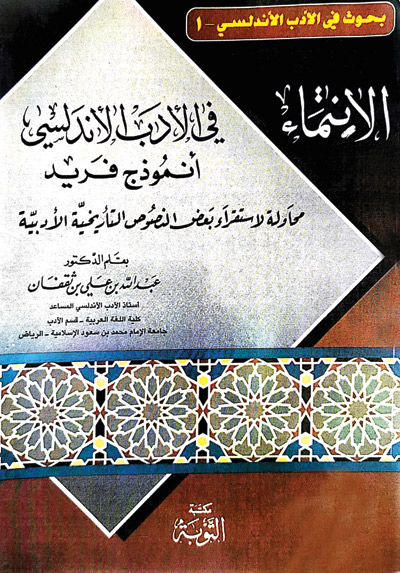 بحوث في الأدب الأندلسي - ١
الانتماء
في الأدب الأندلسي
أنموذج فريد
محاولة لاستقراء بعض النصوص التأريخية الأدبية
بقلم الدكتور
عبد الله بن علي بن ثقفان
أستاذ الأدب الأندلسي المساعد
كلية اللغة العربية - قسم الأدب
جامعة الإمام محمد بن سعود الإسلامية - الرياض
مكتبة
التوبة